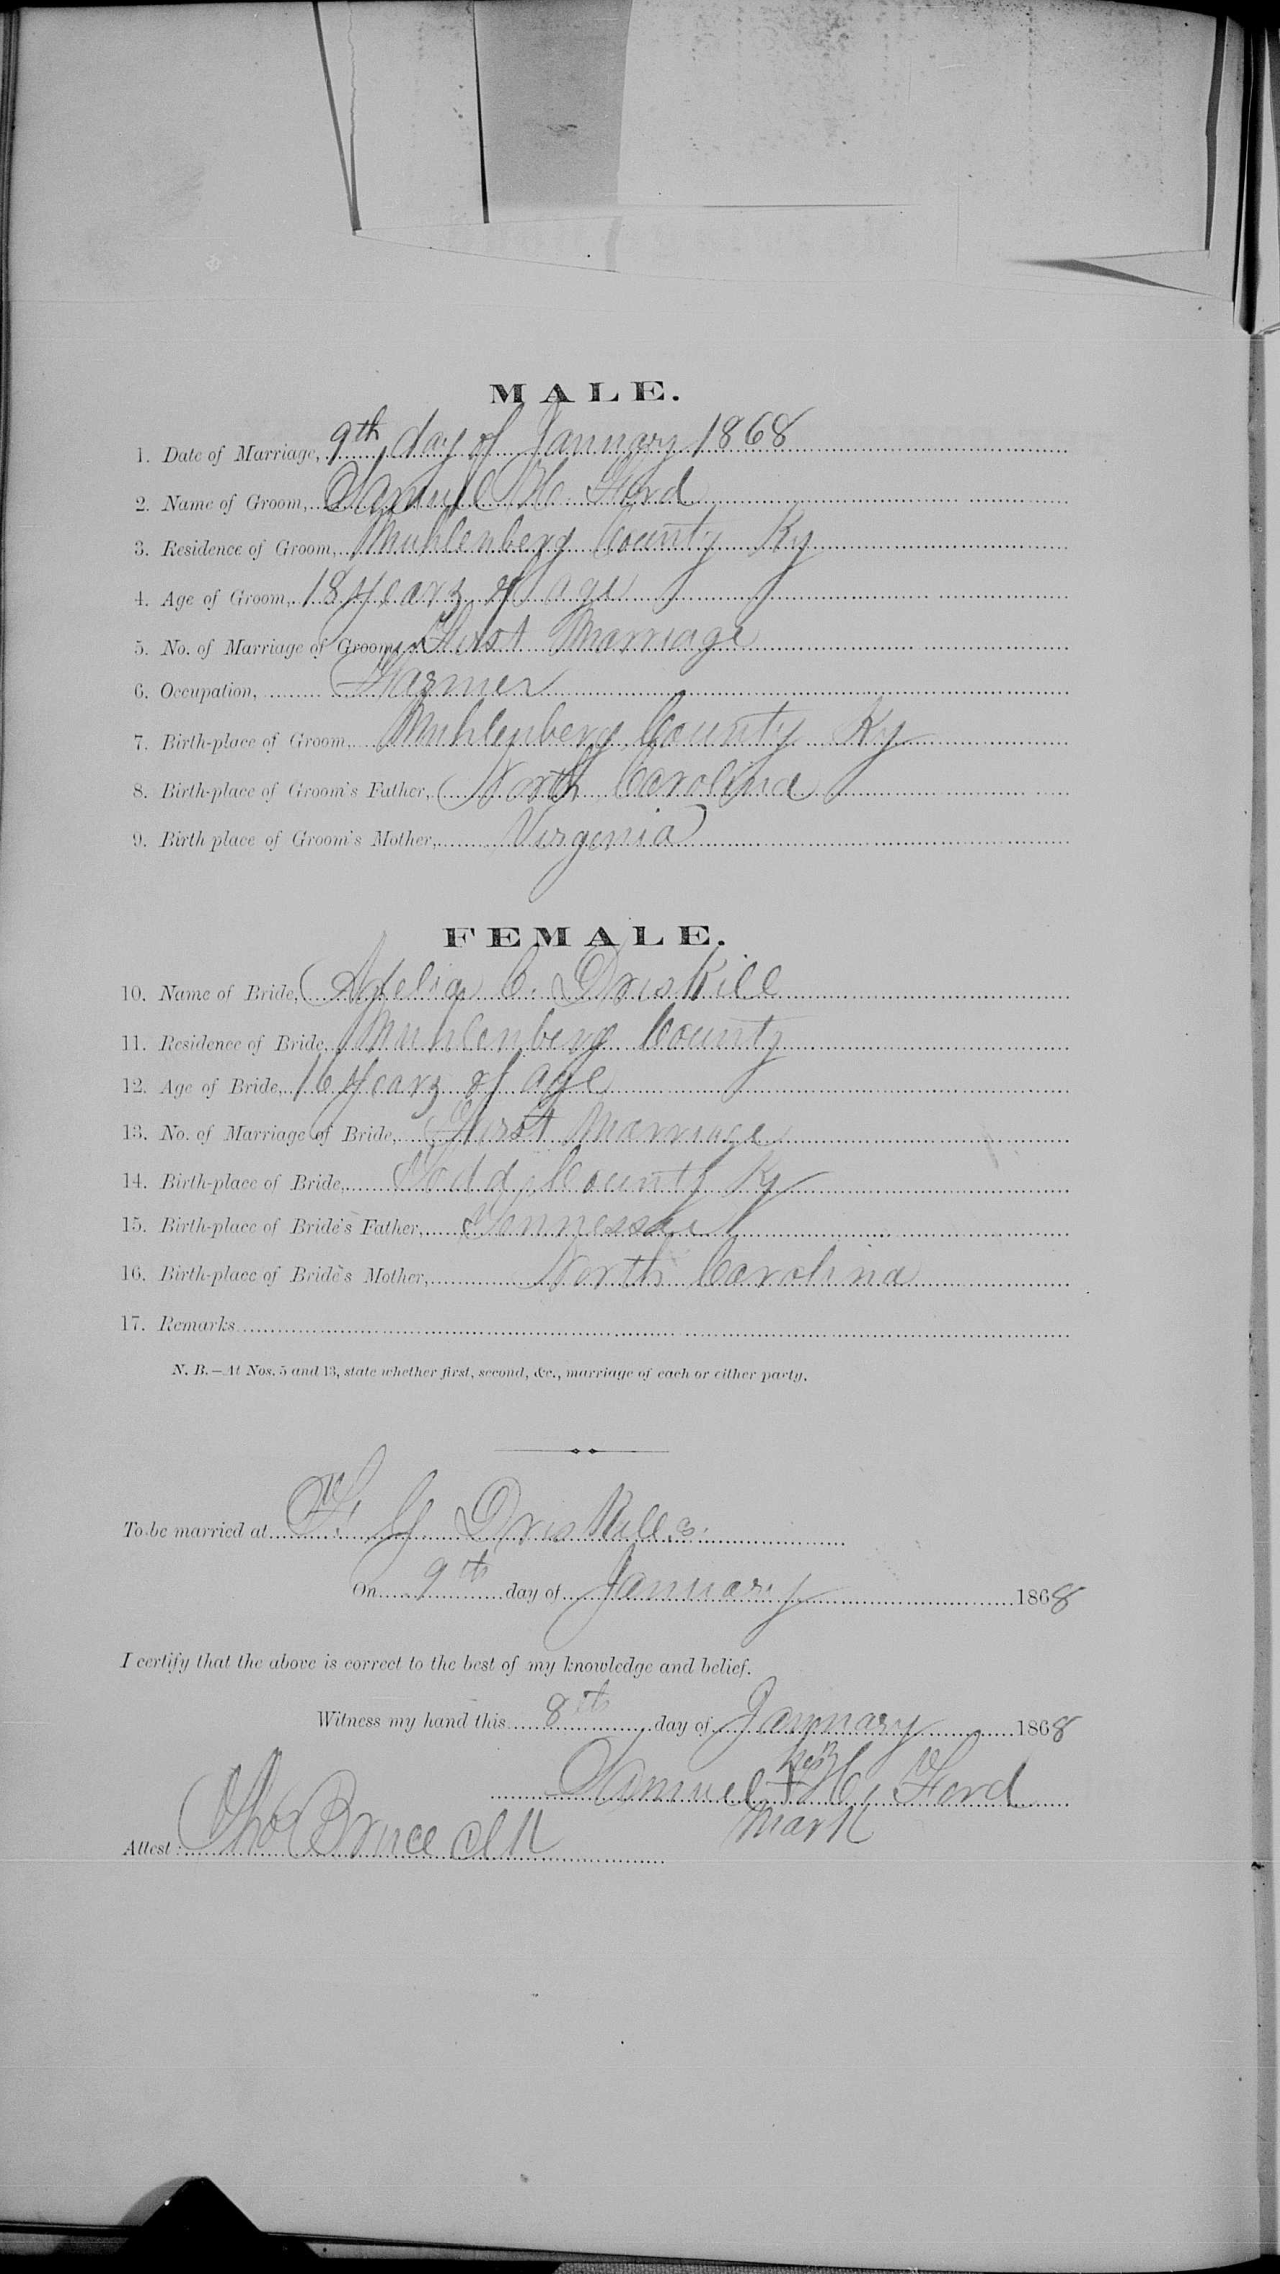 MALE.
1. Date of Marriage, 9th day of January 1868
2. Name of Groom, Samuel H. Ford
3. Residence of Groom, Muhlenberg County Ky
4. Age of Groom, 18 years of age
5. No. of Marriage of Groom, First Marriage
6. Occupation, Farmer
7. Birth-place of Groom, Muhlenberg County Ky
8. Birth-place of Groom's Father, North Carolina
9. Birth place of Groom's Mother, Virginia
FEMALE.
10. Name of Bride, C. Driskill
11. Residence of Bride, Muhlenberg County
12. Age of Bride, 16 years of age
13. No. of Marriage of Bride, First Marriage
14. Birth-place of Bride, Todd County Ky
15. Birth-place of Bride's Father, Tennessee
16. Birth-place of Bride's Mother, North Carolina
17. Remarks
N. B.—At Nos. 5 and 13, state whether first, second, &c., marriage of each or either party.
To be married at Driskills.
On 9th day of January 1868
I certify that the above is correct to the best of my knowledge and belief.
Witness my hand this 8th day of January 1868
his
Samuel + H. Ford
mark
Attest: Thos Bruce Clk